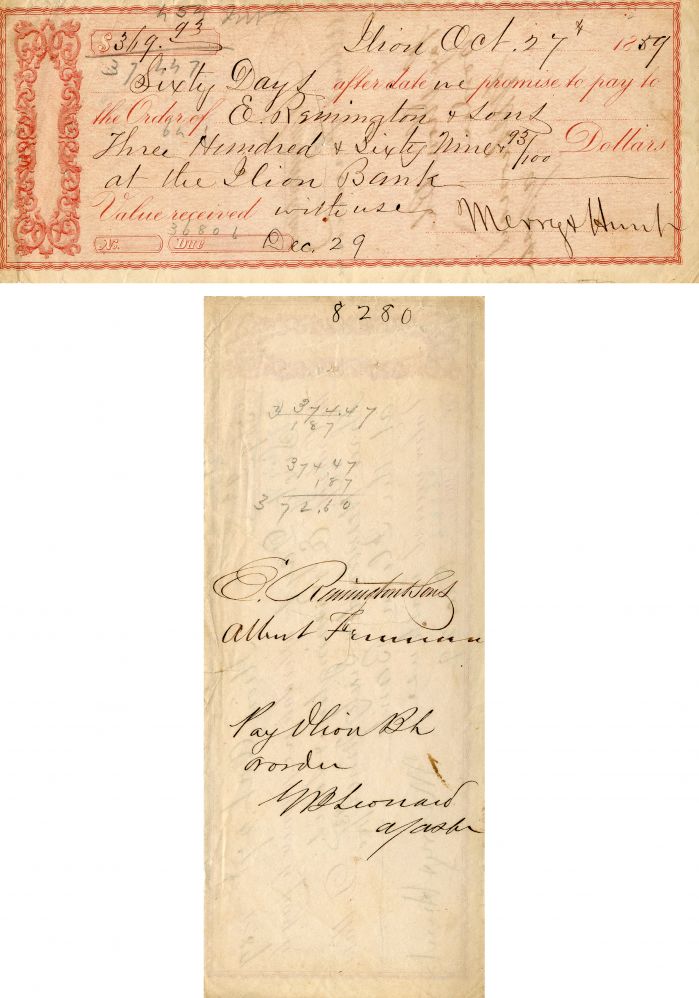 $369.93
37447
Ilion Oct. 27th 1859
Sixty Days after date we promise to pay to
the Order of E. Remington & Sons
Three Hundred & Sixty Nine & 93/100 Dollars
at the Ilion Bank
Value received with use
Merry & Hunt
36806
No. DUE Dec. 29
8280
374.47
187
37447
187
372.60
E. Remington & Sons
Albert
Pay Ilion Bk
or order
Leonard